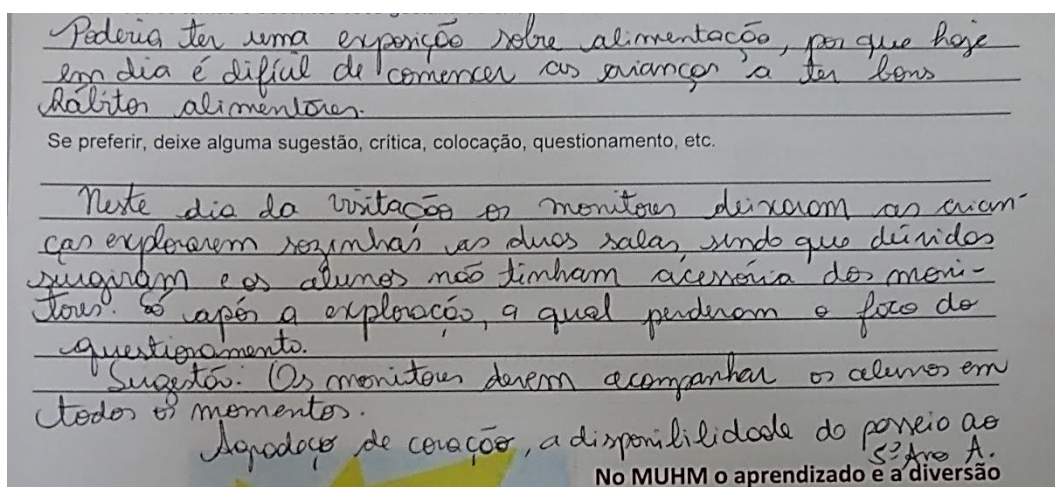 Poderia ter uma exposição sobre alimentação, por que hoje
em dia é difícil de comencer as crianças a ter bons
hábitos alimentares.
Se preferir, deixe alguma sugestão, crítica, colocação, questionamento, etc.
Neste dia da visitação os monitores deixaram as crian-
ças explorarem sozinhas as duas salas, sendo que dúvidas
surgiram e os alunos não tinham acessória dos moni-
tores. Só após a exploração, a qual perderam o foco do
questionamento.
Sugestão: Os monitores devem acompanhar os alunos em
todos os momentos.
Agradeço de coração, a disponibilidade do passeio ao
5º Ano A.
No MUHM o aprendizado e a diversão